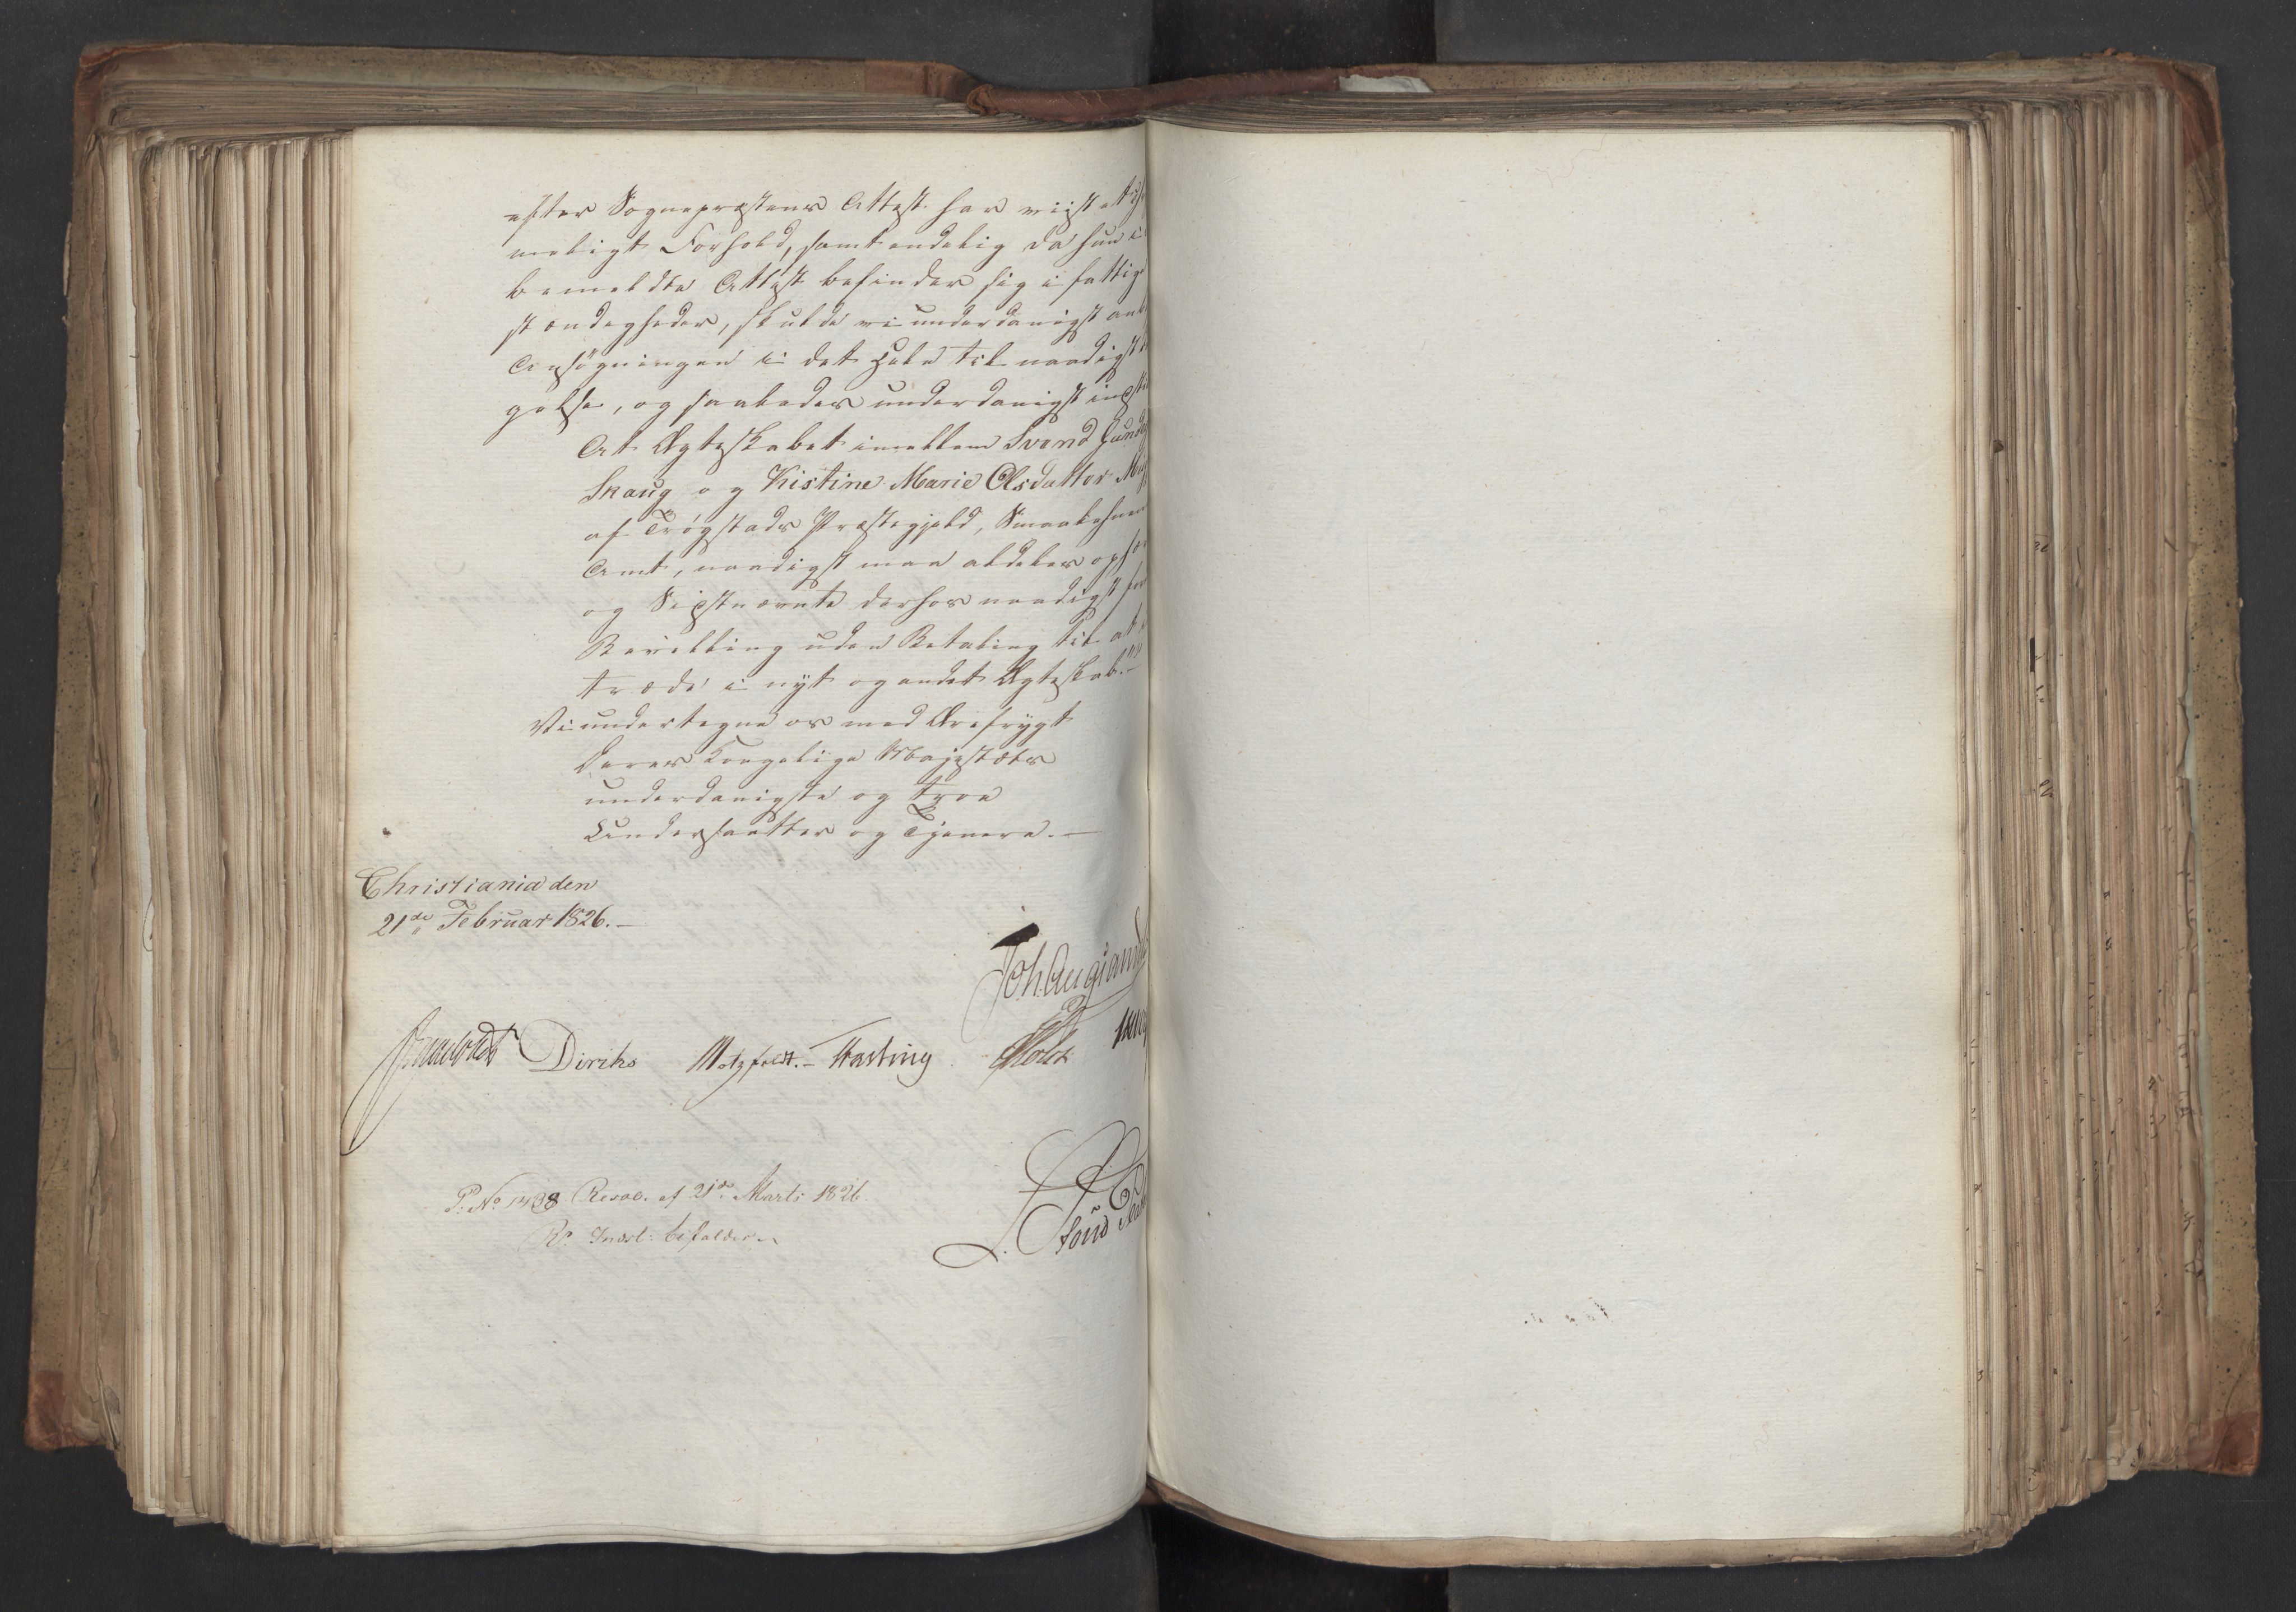 efter Sognepræstens Attest har viist et
meligt Forhold, samt endelig da hun i
bemeldte Attest befinder sig i fattige
stændigheder, skulde vi underdanigst an
Ansøgningen i det Hele til naadigst
gelse, og saaledes underdanigst indsti
At Ægteskabet imellem Svend Gund
Skaug og Kistine Marie Olsdatter
af Trøgstads Præstegjeld, Smaalehnenes
Amt, naadigst maa aldeles ophæ
og Sidstnævnte derhos naadigst
Bevilling uden Betaling til at
træde i nyt og andet Ægteskab."
Vi undertegne os med Ærefrygt
Deres Kongelige Majestæts
underdanigste og troe
Undersaatter og Tjenere. —
Christiania den
21de Februar 1826. —
Joh. Aug. Sand
Diriks Motzfeldt. — Fasting Holst
P. No 1438. Resol. af 21de Marts 1826.
Indst: bifaldes